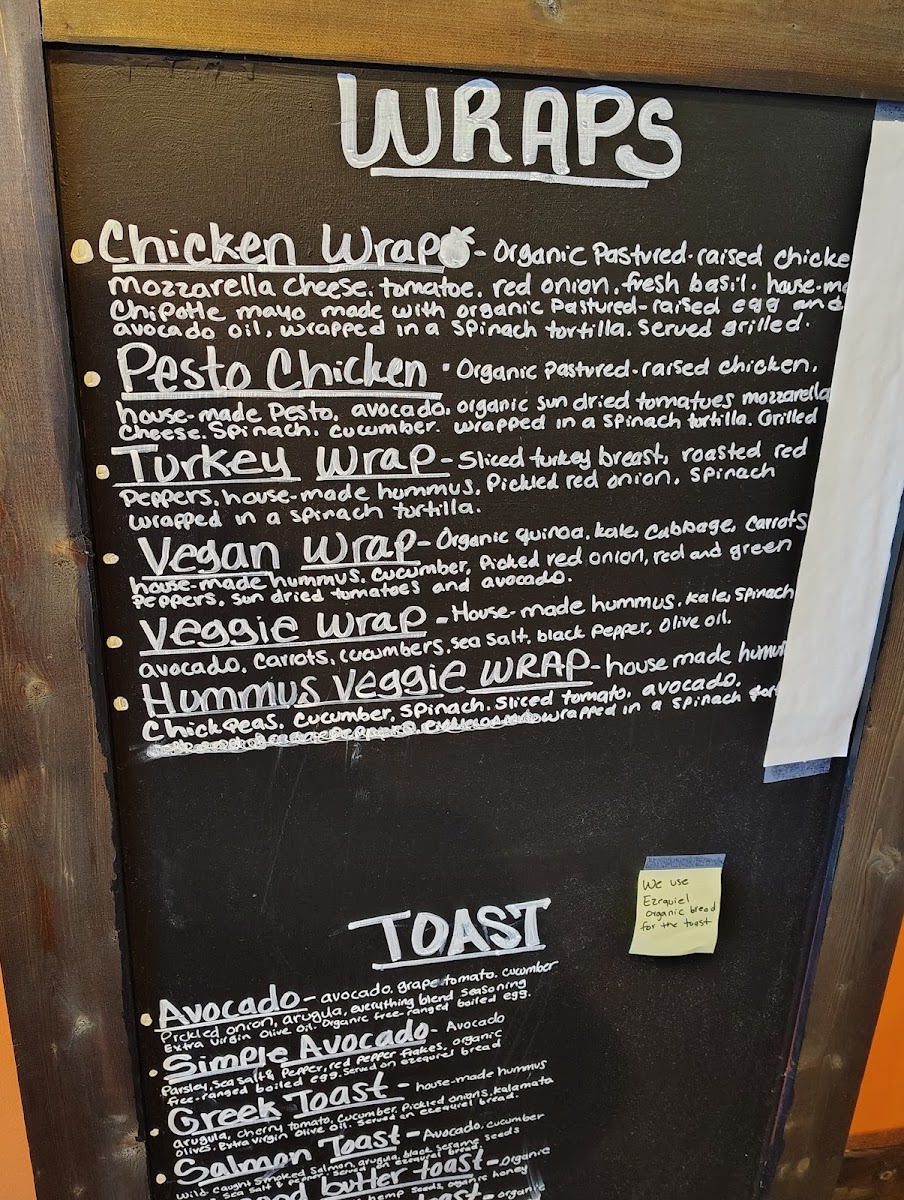 WRAPS
Chicken Wrap - Organic Pastured-raised chicke
mozzarella cheese, tomatoe, red onion, fresh basil, house-m
Chipotle mayo made with organic Pastured-raised egg and
avocado oil, wrapped in a spinach tortilla. Served grilled.
Pesto Chicken - Organic Pastured-raised chicken,
house-made Pesto, avocado, organic sun dried tomatoes mozzarella
Cheese, Spinach, cucumber. wrapped in a spinach tortilla. Grilled
Turkey Wrap - Sliced turkey breast, roasted red
Peppers, house-made hummus, Pickled red onion, spinach
wrapped in a spinach tortilla.
Vegan Wrap - Organic quinoa, kale, cabbage, carrots
house-made hummus, cucumber, Picked red onion, red and green
Peppers, sun dried tomatoes and avocado.
Veggie Wrap - House-made hummus, kale, spinach
avocado, carrots, cucumbers, sea salt, black pepper, olive oil.
Hummus Veggie WRAP - house made humm
Chickpeas, cucumber, spinach, sliced tomato, avocado,
wrapped in a spinach tor
We use
Ezequiel
organic bread
for the toast
TOAST
Avocado - avocado, grape tomato, cucumber
Pickled onion, arugula, everything blend seasoning
Extra virgin olive oil. Organic free-ranged boiled egg.
Simple Avocado - Avocado
Parsley, sea salt & Pepper, red Pepper flakes, organic
free-ranged boiled egg. Served on ezequrel bread
Greek Toast - house-made hummus
arugula, cherry tomato, cucumber, Pickled onions, kalamata
olives, Extra virgin olive oil. Served on ezequrel bread.
Salmon Toast - Avocado, cucumber
Wild caught smoked salmon, arugula, black sesame seeds
sea salt & pepper. Served on ezequrel bread
butter toast - Organic
hemp seeds, organic honey
toast - organi